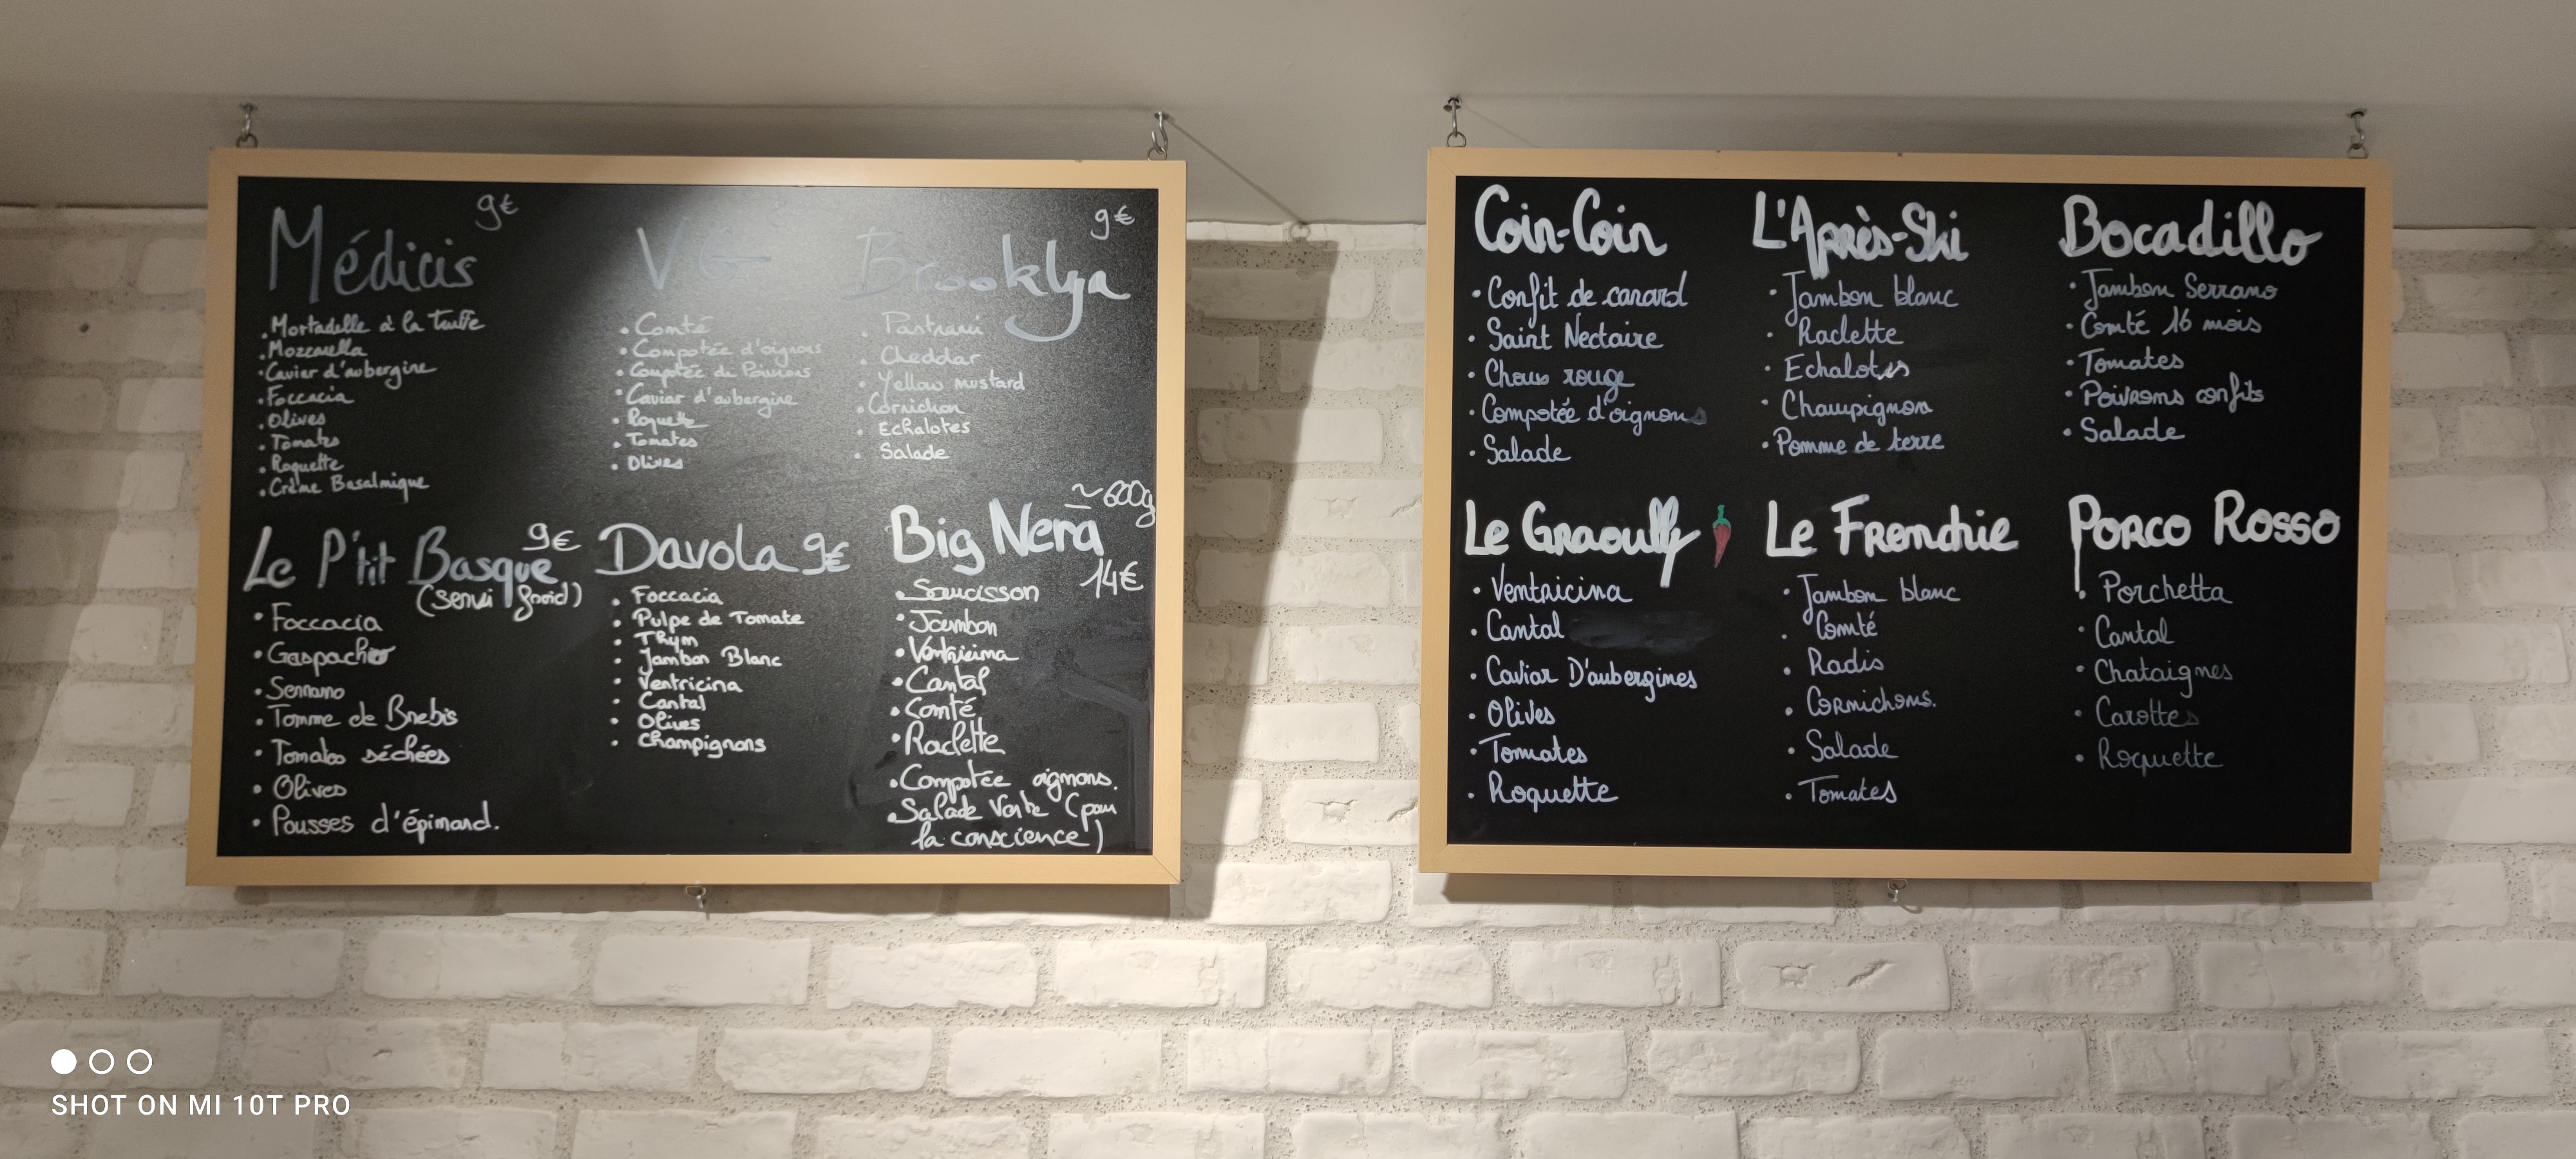 Médicis 9€
Mortadelle à la truffe
Mozzarella
Caviar d'aubergine
Foccacia
Olives
Tomates
Roquette
Crème Basalmique
Comté
Compotée d'oignons
Compotée de Poivrons
Caviar d'aubergine
Roquette
Tomates
Olives
Brooklyn 9€
Pastrami
Cheddar
Yellow mustard
Cornichon
Echalotes
Salade
Le P'tit Basque 9€
(servi froid)
Foccacia
Gaspacho
Serrano
Tomme de Brebis
Tomates séchées
Olives
Pousses d'épinard.
Davola 9€
Foccacia
Pulpe de Tomate
Thym
Jambon Blanc
Ventricina
Cantal
Olives
Champignons
~600g
Big Nena
14€
Saucisson
Jambon
Ventricina
Cantal
Comté
Raclette
Compotée oignons.
Salade Verte (pour
la conscience)
Coin-Coin
Confit de canard
Saint Nectaire
Choux rouge
Compotée d'oignons
Salade
L'Après-Ski
Jambon blanc
Raclette
Echalotes
Champignon
Pomme de terre
Bocadillo
Jambon Serrano
Comté 16 mois
Tomates
Poivrons confits
Salade
Le Graoully
Ventricina
Cantal
Caviar D'aubergines
Olives
Tomates
Roquette
Le Frenchie
Jambon blanc
Comté
Radis
Cornichons.
Salade
Tomates
Porco Rosso
Porchetta
Cantal
Chataignes
Carottes
Roquette
SHOT ON MI 10T PRO